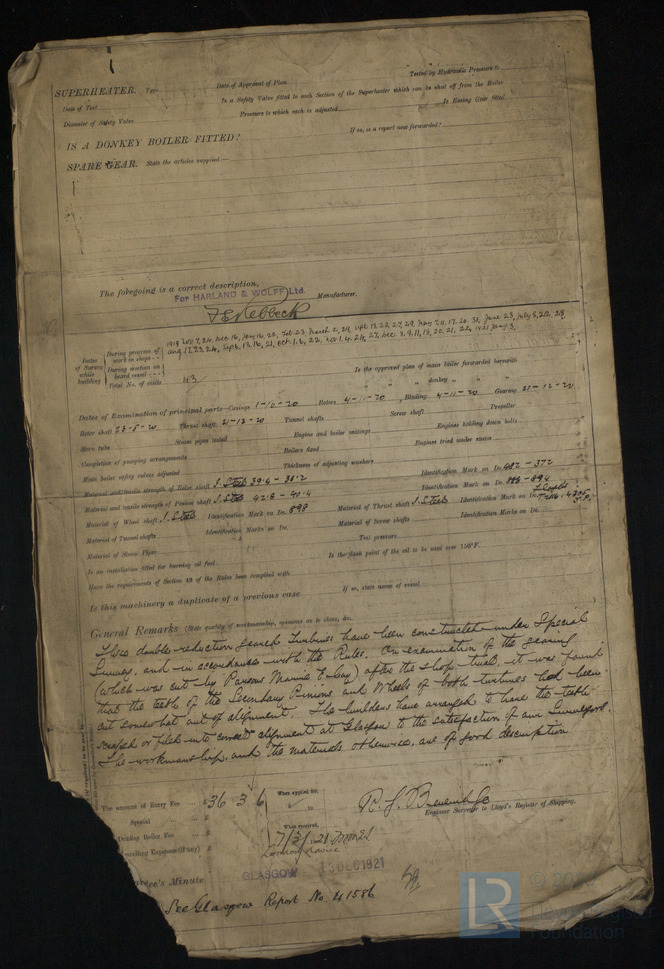 SUPERHEATER. Type Date of Approval of Plan Tested by Hydraulic Pressure to
Date of Test Is a Safety Valve fitted to each Section of the Superheater which can be shut off from the Boiler
Diameter of Safety Valve Pressure to which each is adjusted Is Easing Gear fitted
IS A DONKEY BOILER FITTED? If so, is a report now forwarded?
SPARE GEAR. State the articles supplied:—
The foregoing is a correct description,
For HARLAND & WOLFF Ltd. Manufacturer.
Rebbeck
Dates of Survey while building
During progress of work in shops - - 1919 Nov 7, 24, Dec 16, Jan 16, 20, Feb 23, March 2, 24, Sept 13, 22, 27, 29, May 7, 11, 17, 20, 31, June 23, July 5, 20, 28
Aug 17, 23, 24, Sept 6, 13, 16, 21, Oct 1, 6, 22, Nov 1, 4, 24, 27, Dec 8, 9, 11, 13, 20, 21, 22, 1921 May 3.
During erection on board vessel - - -
Total No. of visits 43 Is the approved plan of main boiler forwarded herewith
" " donkey " " "
Dates of Examination of principal parts—Casings 1-10-20 Rotors 4-11-20 Blading 4-11-20 Gearing 21-12-20
Rotor shaft 23-8-20 Thrust shaft 21-12-20 Tunnel shafts Screw shaft Propeller
Stern tube Steam pipes tested Engine and boiler seatings Engines holding down bolts
Completion of pumping arrangements Boilers fixed Engines tried under steam
Main boiler safety valves adjusted Thickness of adjusting washers
Material and tensile strength of Rotor shaft I. Steel 39.4 - 38.2 Identification Mark on Do. 482 - 372
Material and tensile strength of Pinion shaft I. Steel 42.8 - 40.4 Identification Mark on Do. 888 - 894
Material of Wheel shaft I. Steel Identification Mark on Do. 898 Material of Thrust shaft I. Steel Identification Mark on Do. Lloyds
Material of Tunnel shafts Identification Marks on Do. Material of Screw shafts Identification Marks on Do.
Material of Steam Pipes Test pressure
Is an installation fitted for burning oil fuel Is the flash point of the oil to be used over 150°F.
Have the requirements of Section 49 of the Rules been complied with
Is this machinery a duplicate of a previous case If so, state name of vessel
General Remarks (State quality of workmanship, opinions as to class, &c.
These double reduction geared turbines have been constructed under Special
Survey, and in accordance with the Rules. On examination of the gearing
(which was cut by Parsons Marine T. Coy) after the shop trial, it was found
that the teeth of the Secondary Pinions and Wheels of both turbines had been
cut somewhat out of alignment. The builders have arranged to have the teeth
scraped or filed into correct alignment at Glasgow to the satisfaction of our Surveyors.
The workmanship, and the materials otherwise, are of good description
The amount of Entry Fee ... £ 36 3 6 When applied for,
Special ... £
Donkey Boiler Fee ... £ When received,
Travelling Expenses (if any) £ 7/3/21
Engineer Surveyor to Lloyd's Register of Shipping.
Committee's Minute GLASGOW 13 DEC 1921
See Glasgow Report No. 41586
LR
© 2020
Lloyd's Register
Foundation